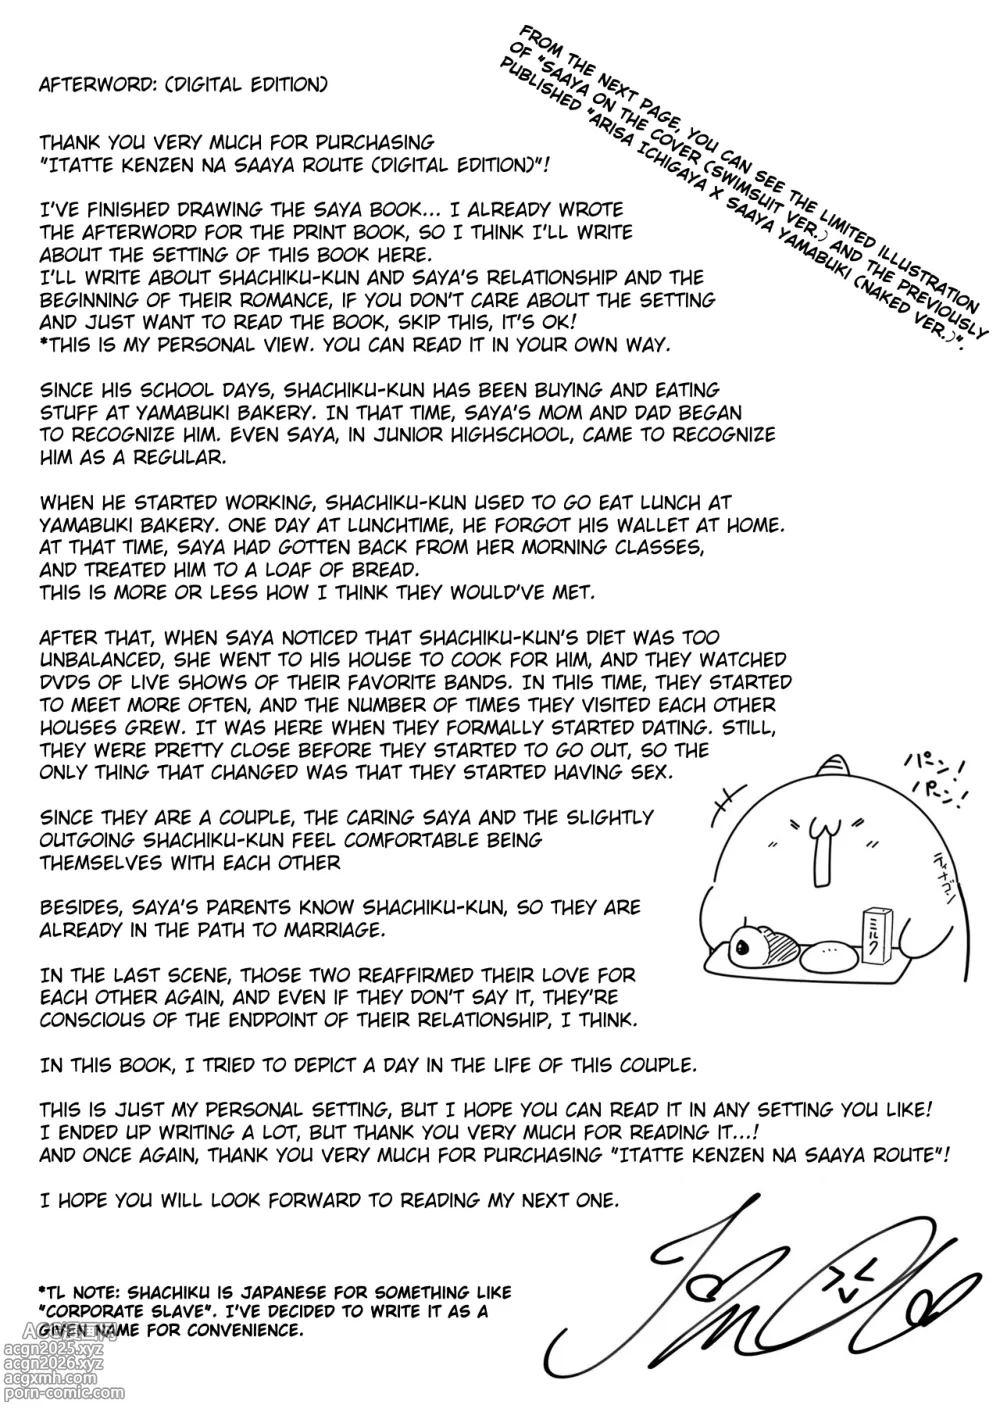 AFTERWORD: (DIGITAL EDITION)
FROM THE NEXT PAGE, YOU CAN SEE THE LIMITED ILLUSTRATION
OF "SAAYA ON THE COVER (SWIMSUIT VER.) AND THE PREVIOUSLY
PUBLISHED "ARISA ICHIGAYA X SAAYA YAMABUKI (NAKED VER.)".
THANK YOU VERY MUCH FOR PURCHASING
"ITATTE KENZEN NA SAAYA ROUTE (DIGITAL EDITION)"!
I'VE FINISHED DRAWING THE SAYA BOOK... I ALREADY WROTE
THE AFTERWORD FOR THE PRINT BOOK, SO I THINK I'LL WRITE
ABOUT THE SETTING OF THIS BOOK HERE.
I'LL WRITE ABOUT SHACHIKU-KUN AND SAYA'S RELATIONSHIP AND THE
BEGINNING OF THEIR ROMANCE, IF YOU DON'T CARE ABOUT THE SETTING
AND JUST WANT TO READ THE BOOK, SKIP THIS, IT'S OK!
*THIS IS MY PERSONAL VIEW. YOU CAN READ IT IN YOUR OWN WAY.
SINCE HIS SCHOOL DAYS, SHACHIKU-KUN HAS BEEN BUYING AND EATING
STUFF AT YAMABUKI BAKERY. IN THAT TIME, SAYA'S MOM AND DAD BEGAN
TO RECOGNIZE HIM. EVEN SAYA, IN JUNIOR HIGHSCHOOL, CAME TO RECOGNIZE
HIM AS A REGULAR.
WHEN HE STARTED WORKING, SHACHIKU-KUN USED TO GO EAT LUNCH AT
YAMABUKI BAKERY. ONE DAY AT LUNCHTIME, HE FORGOT HIS WALLET AT HOME.
AT THAT TIME, SAYA HAD GOTTEN BACK FROM HER MORNING CLASSES,
AND TREATED HIM TO A LOAF OF BREAD.
THIS IS MORE OR LESS HOW I THINK THEY WOULD'VE MET.
AFTER THAT, WHEN SAYA NOTICED THAT SHACHIKU-KUN'S DIET WAS TOO
UNBALANCED, SHE WENT TO HIS HOUSE TO COOK FOR HIM, AND THEY WATCHED
DVDS OF LIVE SHOWS OF THEIR FAVORITE BANDS. IN THIS TIME, THEY STARTED
TO MEET MORE OFTEN, AND THE NUMBER OF TIMES THEY VISITED EACH OTHER
HOUSES GREW. IT WAS HERE WHEN THEY FORMALLY STARTED DATING. STILL,
THEY WERE PRETTY CLOSE BEFORE THEY STARTED TO GO OUT, SO THE
ONLY THING THAT CHANGED WAS THAT THEY STARTED HAVING SEX.
パーン!
パーン!
SINCE THEY ARE A COUPLE, THE CARING SAYA AND THE SLIGHTLY
OUTGOING SHACHIKU-KUN FEEL COMFORTABLE BEING
THEMSELVES WITH EACH OTHER
ミルク
BESIDES, SAYA'S PARENTS KNOW SHACHIKU-KUN, SO THEY ARE
ALREADY IN THE PATH TO MARRIAGE.
IN THE LAST SCENE, THOSE TWO REAFFIRMED THEIR LOVE FOR
EACH OTHER AGAIN, AND EVEN IF THEY DON'T SAY IT, THEY'RE
CONSCIOUS OF THE ENDPOINT OF THEIR RELATIONSHIP, I THINK.
IN THIS BOOK, I TRIED TO DEPICT A DAY IN THE LIFE OF THIS COUPLE.
THIS IS JUST MY PERSONAL SETTING, BUT I HOPE YOU CAN READ IT IN ANY SETTING YOU LIKE!
I ENDED UP WRITING A LOT, BUT THANK YOU VERY MUCH FOR READING IT...!
AND ONCE AGAIN, THANK YOU VERY MUCH FOR PURCHASING "ITATTE KENZEN NA SAAYA ROUTE"!
I HOPE YOU WILL LOOK FORWARD TO READING MY NEXT ONE.
*TL NOTE: SHACHIKU IS JAPANESE FOR SOMETHING LIKE
"CORPORATE SLAVE". I'VE DECIDED TO WRITE IT AS A
GIVEN NAME FOR CONVENIENCE.
acgn2025.xyz
acgn2026.xyz
acgxmh.com
porn-comic.com